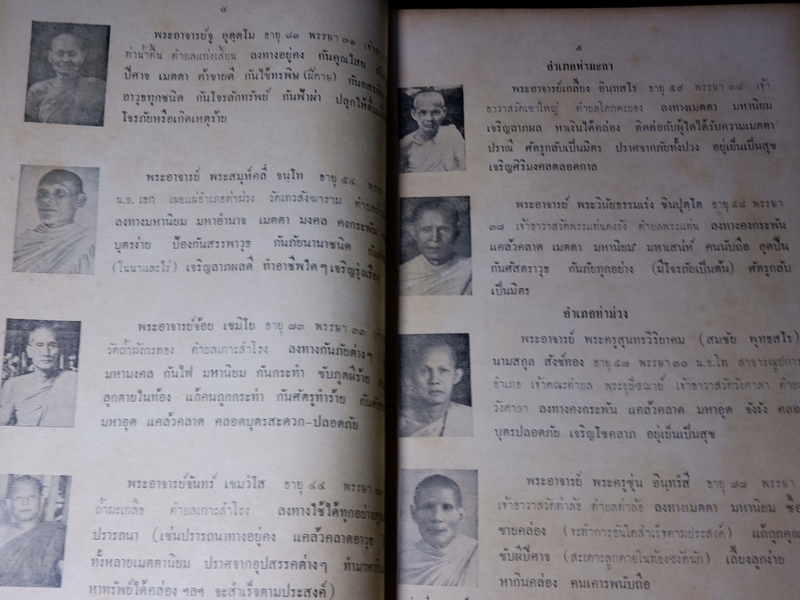 ๙
พระอาจารย์จู อุตฺตโม อายุ ๘๑ พรรษา ๓๑
ท่าน้ำตื้น ตำบลแก่งเสี้ยน ลงทางอยู่คง กันคุณไสย
ปีศาจ เมตตา ค้าขายดี กันไข้ทรพิษ (ฝีดาษ) กันอสรพิษ
อาวุธทุกชนิด กันโจรลักทรัพย์ กันฟ้าผ่า ปลุกให้ตื่น
โจรภัยหรือเกิดเหตุร้าย
พระอาจารย์ พระสมุห์คลี่ จนฺโท อายุ ๕๔
น.ธ. เอก เผยแผ่อำเภอท่าม่วง วัดเทวสังฆาราม
ลงทางมหานิยม มหาอำนาจ เมตตา มงคล คงกระพัน
บุตรง่าย ป้องกันสรรพาวุธ กันภัยนานาชนิด
(ในนาและไร่) เจริญลาภผลดี ทำอาชีพใด ๆ เจริญรุ่งเรือง
พระอาจารย์จ้อย เขมิโย อายุ ๗๓ พรรษา ๓๓
วัดถ้ำมังกรทอง ตำบลเกาะสำโรง ลงทางกันภัยต่างๆ
มหามงคล กันไฟ มหานิยม กันกระทำ ขับภูตผีร้าย
ลูกตายในท้อง แก้คนถูกกระทำ กันศัตรูทำร้าย
มหาอุด แคล้วคลาด คลอดบุตรสะดวก-ปลอดภัย
พระอาจารย์จันทร์ เขมวํโส อายุ ๔๕
ถ้ำมะเกลือ ตำบลเกาะสำโรง ลงทางใช้ได้ทุกอย่าง
ปรารถนา (เช่นปรารถนาทางอยู่คง แคล้วคลาดอาวุธ
ทั้งหลายเมตตานิยม ปราศจากอุปสรรคต่างๆ
หาทรัพย์ให้คล่อง ฯลฯ จะสำเร็จตามประสงค์)
๕
อำเภอท่ามะกา
พระอาจารย์เกลี้ยง อินฺทสโร อายุ ๕๙ พรรษา ๓๘ เจ้า
อาวาสวัดเขาใหญ่ ตำบลโคกตะบอง ลงทางเมตตา มหานิยม
เจริญลาภผล หาเงินได้คล่อง ติดต่อกับผู้ใดได้รับความเมตตา
ปรานี ศัตรูกลับเป็นมิตร ปราศจากภัยทั้งปวง อยู่เย็นเป็นสุข
เจริญศิริมงคลตลอดกาล
พระอาจารย์ พระวินัยธรรมเร่ง ชินปุตฺโต อายุ ๕๘ พรรษา
๓๘ เจ้าอาวาสวัดพระแท่นดงรัง ตำบลพระแท่น ลงทางคงกระพัน
แคล้วคลาด เมตตา มหานิยม มหาเสน่ห์ คนนับถือ อุดปืน
กันศัสตราวุธ กันภัยทุกอย่าง (มีโจรภัยเป็นต้น) ศัตรูกลับ
เป็นมิตร
อำเภอท่าม่วง
พระอาจารย์ พระครูสุนทรวิริยาคม (สมชัย พุทฺธสโร)
นามสกุล สังข์ทอง อายุ ๕๗ พรรษา ๓๐ น.ธ.โท สาธารณูปการ
อำเภอ เจ้าคณะตำบล พระอุปัชฌาย์ เจ้าอาวาสวัดวังศาลา
วังศาลา ลงทางคงกระพัน แคล้วคลาด มหาอุด จังงัง
บุตรปลอดภัย เจริญโชคลาภ อยู่เย็นเป็นสุข
พระอาจารย์ พระครูชุ่น อินฺทรํสี อายุ ๗๗ พรรษา
เจ้าอาวาสวัดท่าล้อ ตำบลท่าล้อ ลงทางเมตตา มหานิยม ซื้อ
ขายคล่อง (จะทำการอันใดสำเร็จตามประสงค์) แก้ถูกคุณ
ขับผีปีศาจ (สะเดาะลูกตายในท้องขลังนัก) เลี้ยงลูกง่าย
หากินคล่อง คนเคารพนับถือ